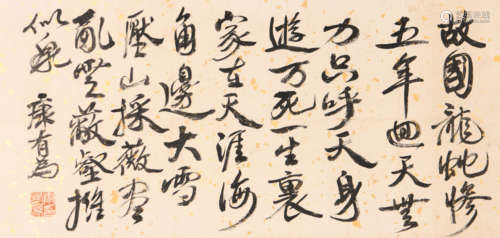 故國龍蛇慘
五年迴天無
力只呼天身
遊万死一生裏
家在天涯海
角邊大雪
壓山採薇盡
亂雲蔽壑推
似
康有為